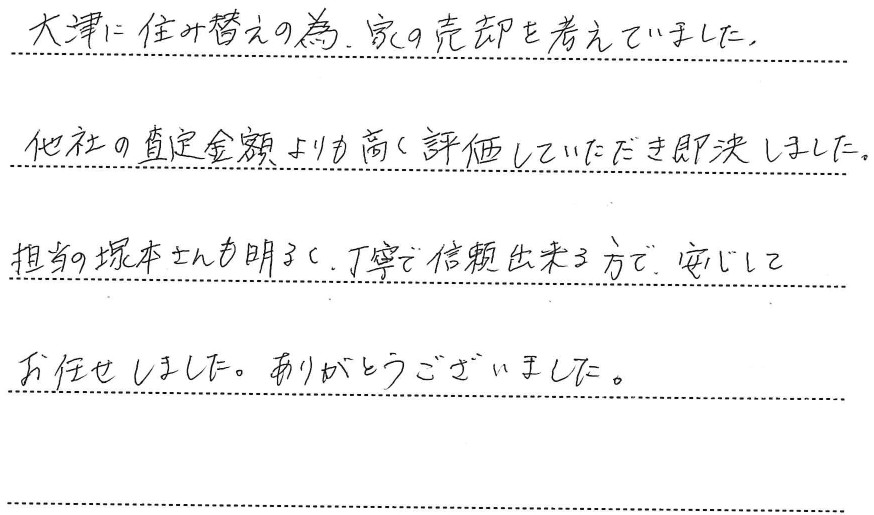 大津に住み替えの為、家の売却を考えていました、
他社の査定金額よりも高く評価していただき即決しました。
担当の塚本さんも明るく、丁寧で信頼出来る方で、安心して
お任せしました。ありがとうございました。